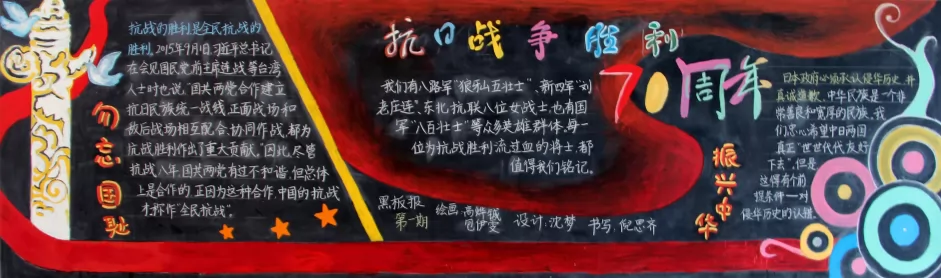 抗战的胜利是全民抗战的
胜利。2015年9月1日,习近平总书记
在会见国民党前主席连战等台湾
人士时也说,"国共两党合作建立
抗日民族统一战线,正面战场和
敌后战场相互配合、协同作战,都为
抗战胜利作出了重大贡献。"因此,尽管
抗战八年国共两党有过不和谐,但总体
上是合作的,正因为这种合作,中国的抗战
才称作"全民抗战"。
勿忘国耻
抗日战争胜利
70周年
我们有八路军"狼牙山五壮士"、新四军"刘
老庄连"、东北抗联八位女战士,也有国
军"八百壮士"等众多英雄群体,每一
位为抗战胜利流过血的将士,都
值得我们铭记。
黑板报
第一期
绘画:高烨城
设计:沈梦
书写:倪思齐
振兴中华
日本政府必须承认侵华历史,并
真诚道歉。中华民族是一个非
常善良和宽厚的民族,我
们忠心希望中日两国
真正"世世代代友好
下去",但是
这得有个前
提条件——对
侵华历史的认错。